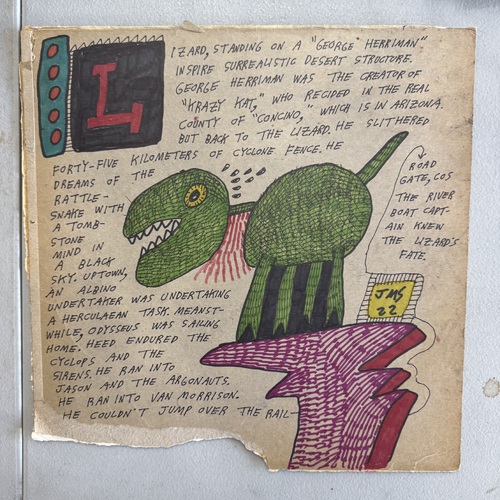 L IZARD, STANDING ON A "GEORGE HERRIMAN"
INSPIRE SURREALISTIC DESERT STRUCTURE.
GEORGE HERRIMAN WAS THE CREATOR OF
"KRAZY KAT," WHO RECIDED IN THE REAL
COUNTY OF "CONCINO," WHICH IS IN ARIZONA.
BUT BACK TO THE LIZARD. HE SLITHERED
FORTY-FIVE KILOMETERS OF CYCLONE FENCE. HE
DREAMS OF THE
RATTLE-
SNAKE WITH
A TOMB-
STONE
MIND IN
A BLACK
SKY. UPTOWN,
AN ALBINO
UNDERTAKER WAS UNDERTAKING
A HERCULAEAN TASK. MEANST-
WHILE, ODYSSEUS WAS SAILING
HOME. HEED ENDURED THE
CYCLOPS AND THE
SIRENS. HE RAN INTO
JASON AND THE ARGONAUTS.
HE RAN INTO VAN MORRISON.
HE COULDN'T JUMP OVER THE RAIL-
ROAD
GATE, COS
THE RIVER
BOAT CAPT-
AIN KNEW
THE LIZARD'S
FATE.
JMS
22